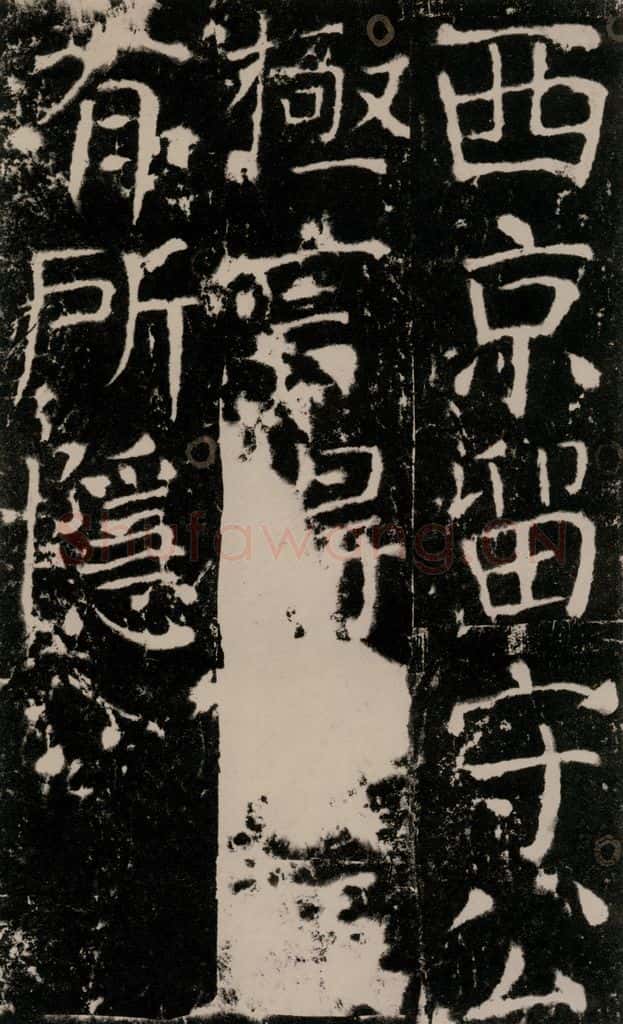 西京留守公
極言得
有所隱
Shufawang.CN